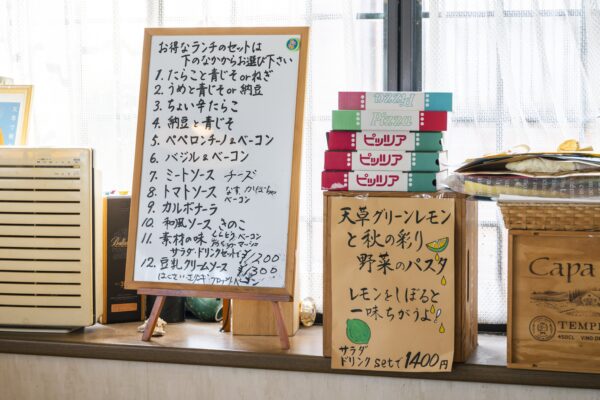 お得なランチのセットは
下のなかからお選び下さい
1. たらこと青じそorねぎ
2. うめと青じそor納豆
3. ちょい辛たらこ
4. 納豆と青じそ
5. ペペロンチーノ&ベーコン
6. バジル&ベーコン
7. ミートソース チーズ
8. トマトソース なす
ベーコン
9. カルボナーラ
10. 和風ソース きのこ
11. 素材の味
サラダ・ドリンクセットで
12. 豆乳クリームソース
1300
Pizza
Pizza
ピッツア
ピッツア
天草グリーンレモン
と秋の彩り
野菜のパスタ
レモンをしぼると
一味ちがうよ!
サラダ
ドリンク setで1400円
Capa
TEMP